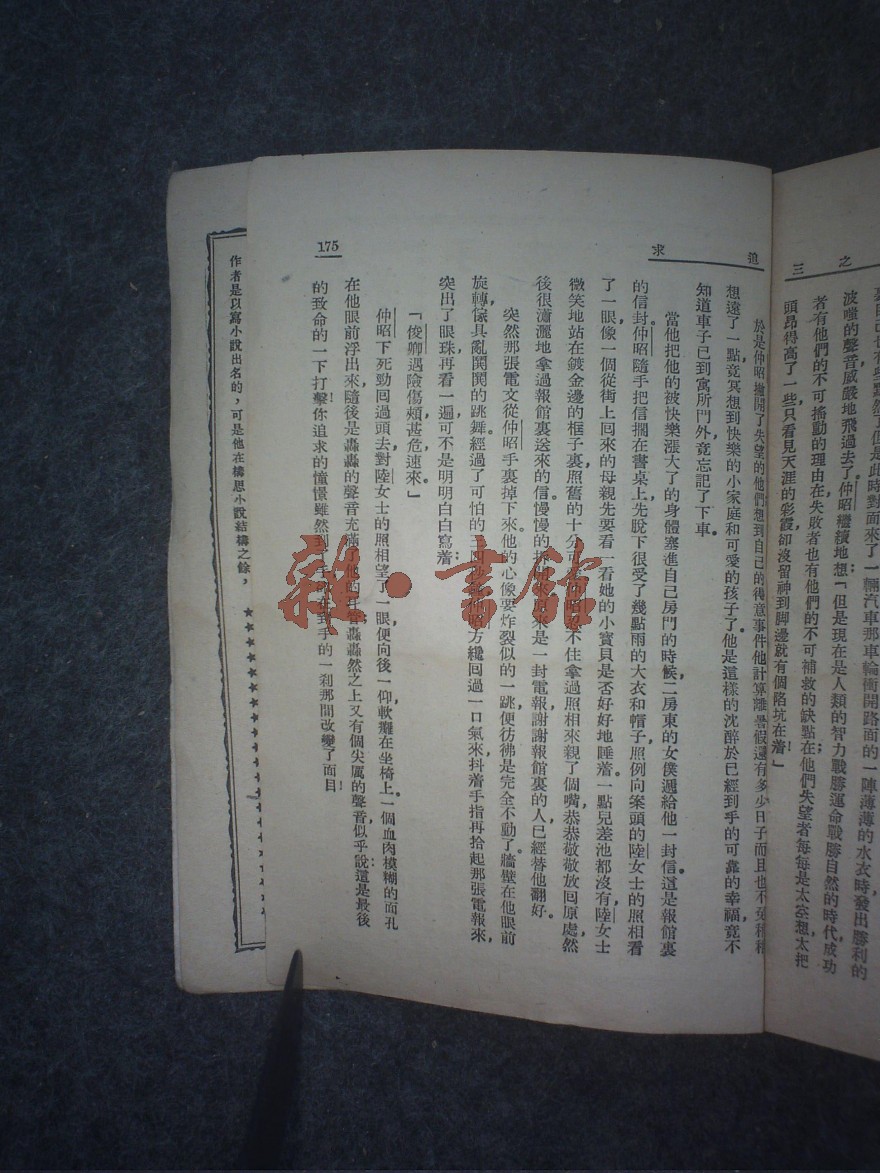 三 之
波嗤的聲音威嚴地飛過去了。仲昭繼續地想:「但是現在是人類的智力戰勝運命戰勝自然的時代,成功
者有他們的不可搖動的理由在,失敗者也有他們的不可補救的缺點在;他們失望者每每是太空想太把
頭昂得高了一些,只看見天涯的彩霞,卻沒留神到脚邊就有個陷坑在着!」
追 求
175
於是仲昭撇開了失望的他們,想到自己的得意事件。他計算離暑假還有多少日子,而且也不免稍稍
想遠了一點,竟冥想到快樂的小家庭和可愛的孩子了。他是這樣的沈醉於已經到手的可靠的幸福,竟不
知道車子已到寓所門外,竟忘記了下車。
當他把他的被快樂漲大了的身體塞進自己房門的時候,二房東的女僕遞給他一封信。這是報館裏
的信封。仲昭隨手把信擱在書桌上,先脫下很受了幾點雨的大衣和帽子,照例向案頭的陸女士的照相看
了一眼,像一個從街上回來的母親先要看一看她的小寶貝是否好好地睡着。一點兒差池都沒有,陸女士
微笑地站在鍍金邊的框子裏,照舊的十分可 仲昭忍不住拿過照相來親了個嘴,恭恭敬敬放回原處,然
後很瀟灑地拿過報館裏送來的信,慢慢的拆開來。原來是一封電報,謝謝報館裏的人,已經替他翻好。
突然那張電文從仲昭手裏掉下來。他的心像要炸裂似的一跳,便彷彿是完全不動了。牆壁在他眼前
旋轉,傢具亂鬨鬨的跳舞。經過了可怕的三四 方纔回過一口氣來,抖着手指再拾起那張電報來,
突出了眼珠再看一遍,可不是明明白白寫着:
「俊卿遇險傷頰,甚危,速來。」
仲昭下死勁回過頭去,對陸女士的照相望了一眼,便向後一仰,軟癱在坐椅上。一個血肉模糊的面孔
在他眼前浮出來,隨後是轟轟的聲音充滿了他的耳管;轟轟然之上又有個尖厲的聲音,似乎說:這是最後
的致命的一下打擊!你追求的憧憬雖然到 手的一刹那間改變了面目!
作者是以寫小說出名的,可是他在構思小說結構之餘,
雜·書館